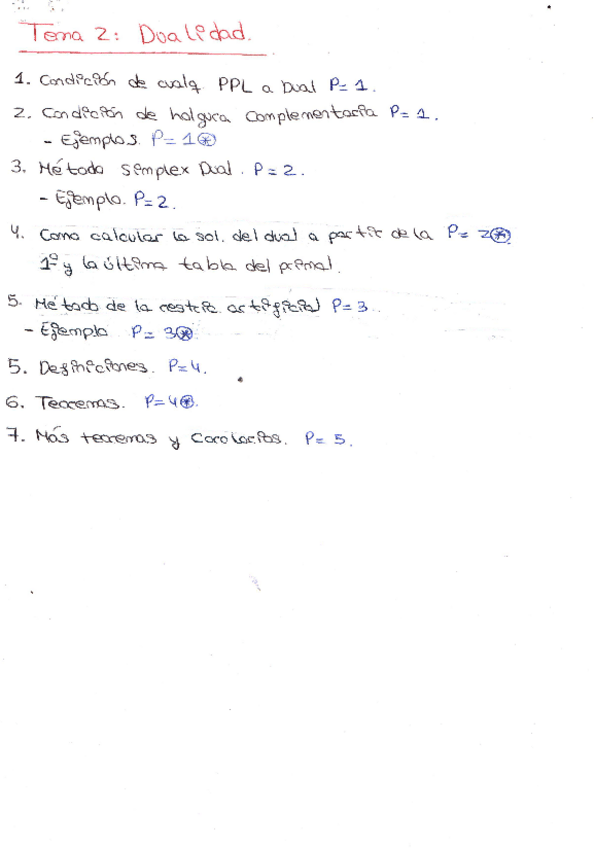 Tema 2: Dualidad.
1. Condición de cualq. PPL a Dual P= 1.
2. Condición de holgura complementaria P= 1.
- Ejemplos. P= 1⊛
3. Método Simplex Dual. P= 2.
- Ejemplo. P= 2.
4. Como calcular la sol. del dual a partir de la P= 2⊛
1º y la última tabla del primal.
5. Método de la restric. artificial P= 3.
- Ejemplo P= 3⊛
5. Definiciones. P= 4.
6. Teoremas. P= 4⊛.
7. Más teoremas y Corolarios. P= 5.